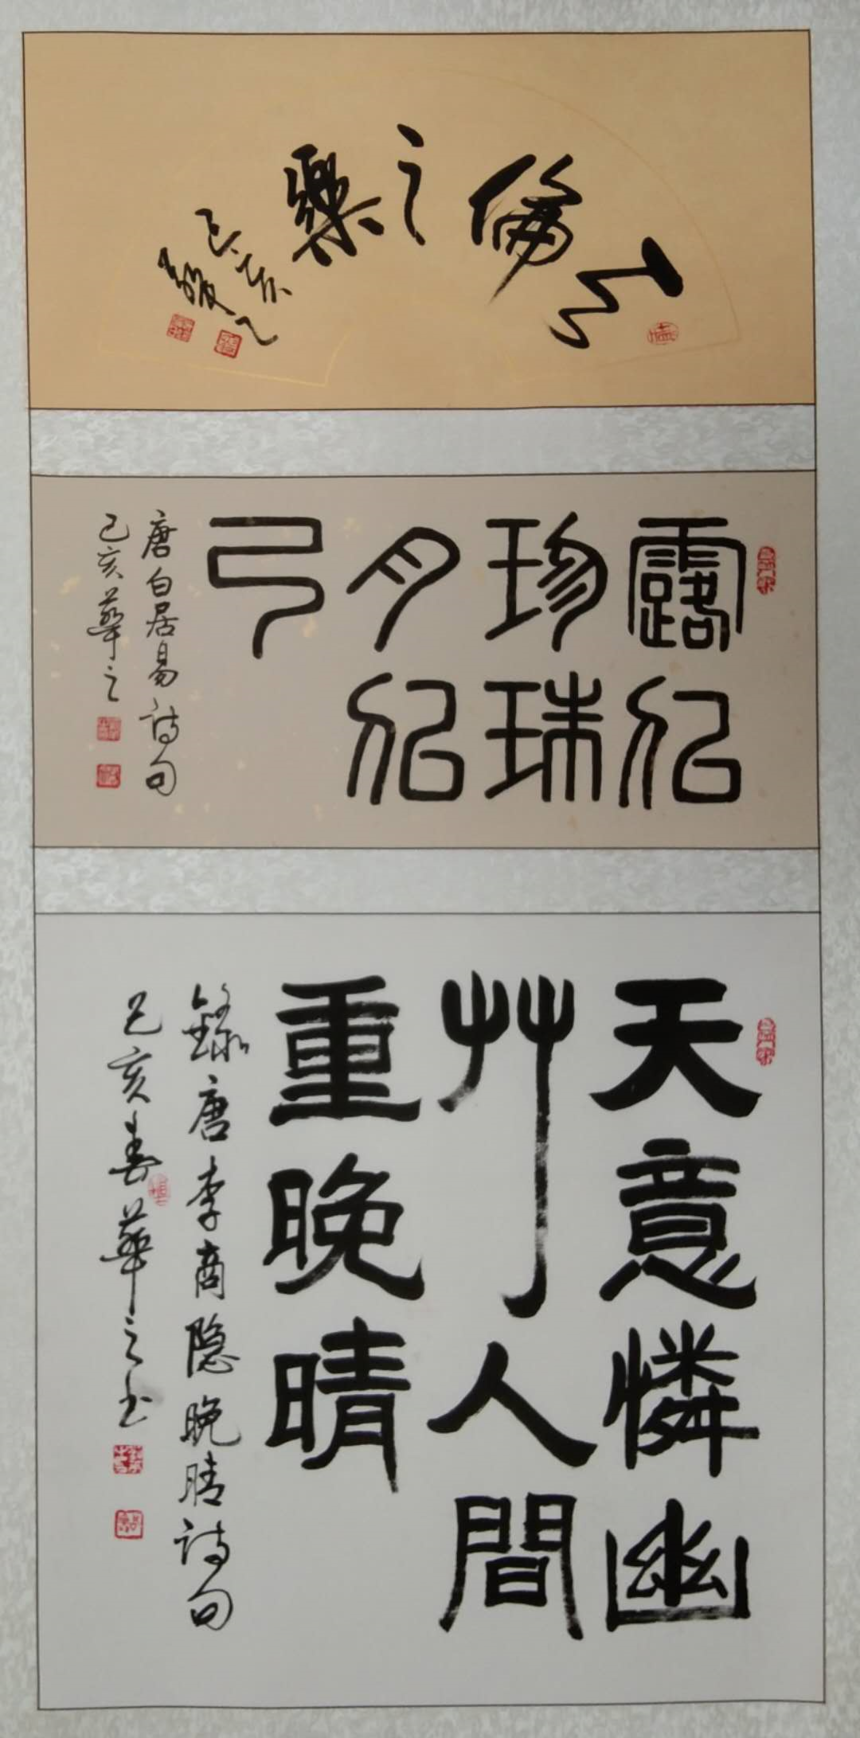 天倫之樂
己亥
露似
珍珠
月似
弓
唐白居易诗句
己亥華之
天意憐幽
艸人間
重晚晴
錄唐李商隐晚晴诗句
己亥春華之书